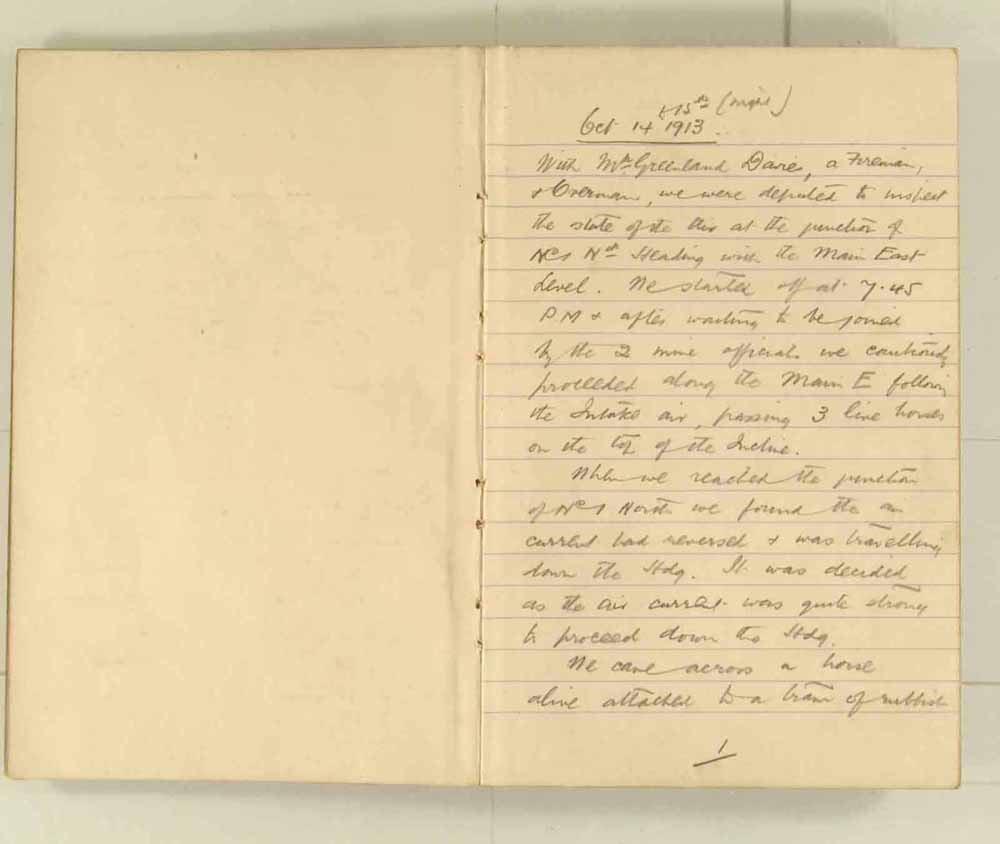 + 15th (night)
Oct 14 1913.
With Mr Greenland Davies, a Fireman,
+ Overman, we were deputed to inspect
the state of the Air at the junction of
No 1 Nth Heading with the Main East
Level. We started off at 7.45
PM + after waiting to be joined
by the 2 mine officials we cautiously
proceeded along the Main E following
the Intake air, passing 3 live horses
on the top of the Incline.
When we reached the junction
of No 1 North we found the air
current had reversed + was travelling
down the Hdg. It was decided
as the air current was quite strong
to proceed down the Hdg.
We came across a horse
alive attached to a tram of rubbish
1